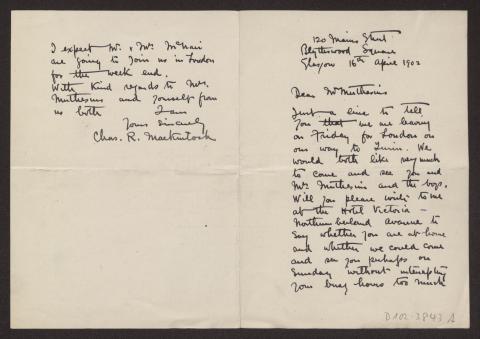 120 Mains Street
Blythswood Square
Glasgow 16th April 1902
Dear Mr Muthesius
Just a line to tell
you that we are leaving
on Friday for London on
our way to Turin. We
would both like very much
to come and see you and
Mrs Muthesius and the boys.
Will you please write to me
at the Hotel Victoria –
Northumberland avenue to
say whether you are at home
and whether we could come
and see you perhaps on
Sunday without interrupting
your busy hours too much
D102-3843 A
I expect Mr. & Mrs McNair
are going to join us in London
for the week end.
With kind regards to Mrs.
Muthesius and yourself from
us both I am
Yours sincerely
Chas. R. Mackintosh